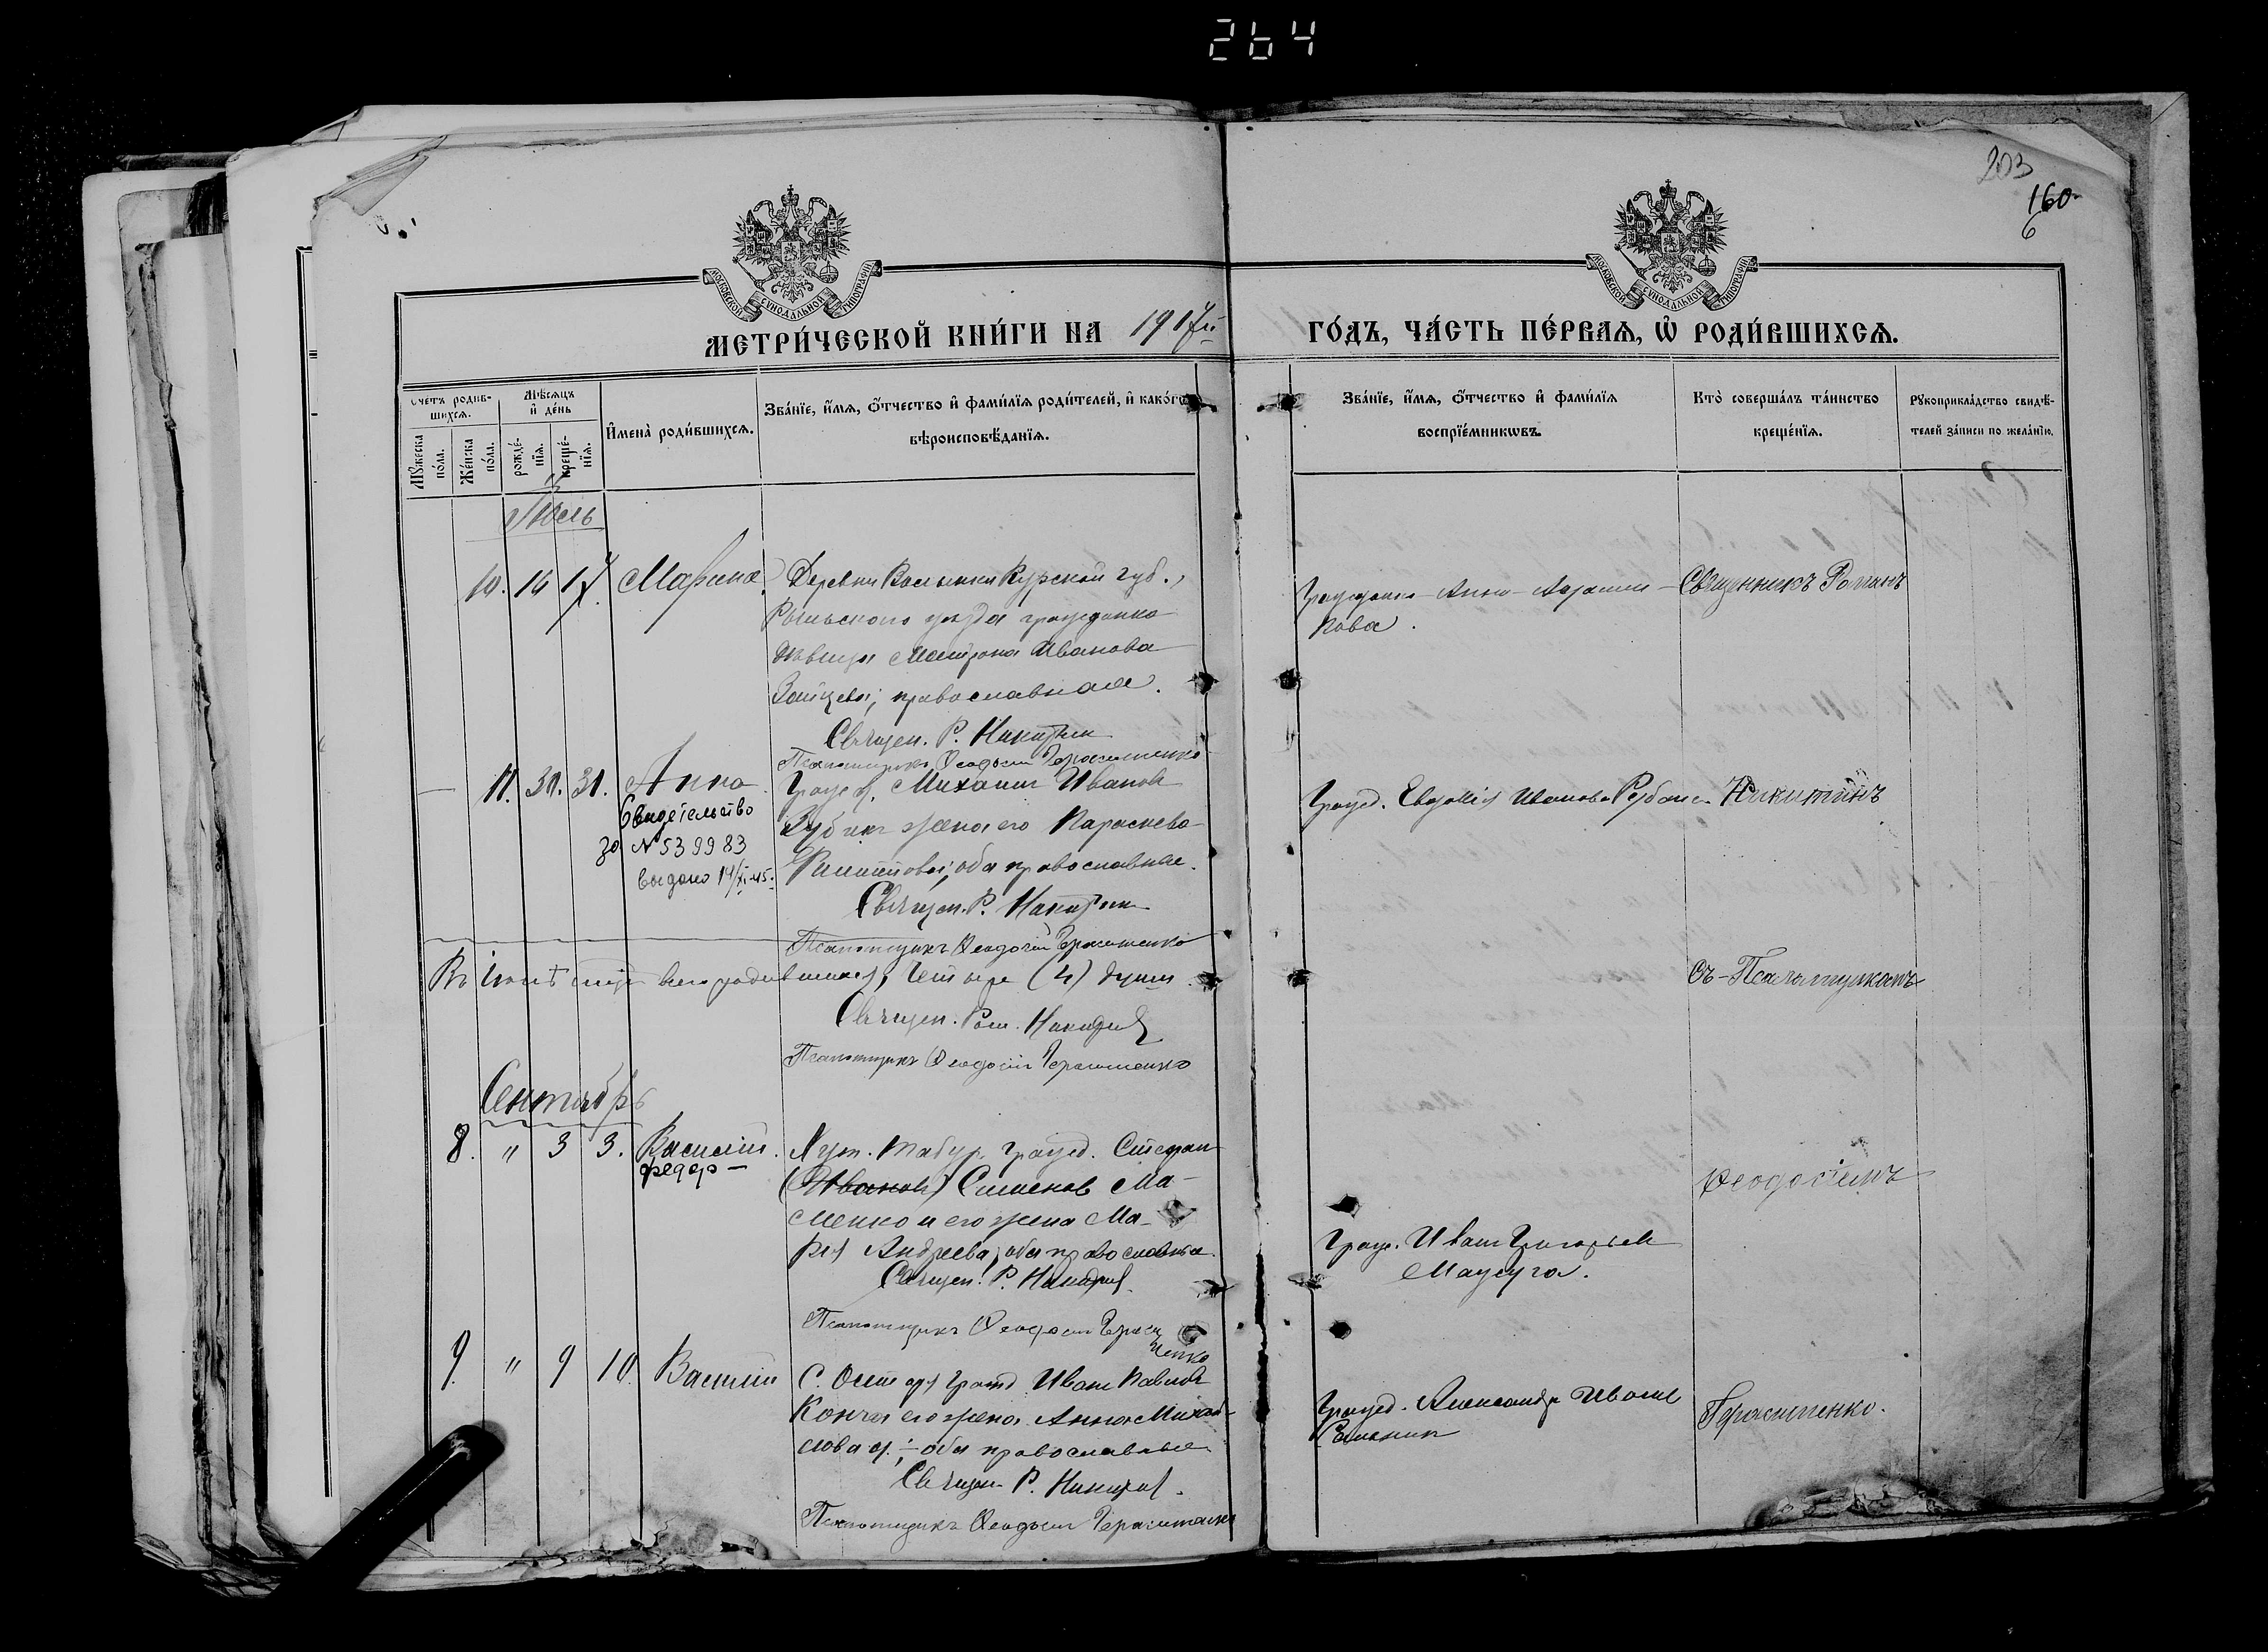 264
203
160
6
МОСКОВСКОЙ СѴНОДАЛЬНОЙ ТИПОГРАФІИ
МОСКОВСКОЙ СѴНОДАЛЬНОЙ ТИПОГРАФІИ
МЕТРИ́ЧЕСКОЙ КНИ́ГИ НА 1917й ГО́ДЪ, ЧА́СТЬ ПЕ́РВАѦ, Ѿ РОДИ́ВШИХСѦ.
Счетъ родив-
шихсѧ.
Мѣ́сѧцъ
и҆ де́нь
Мꙋ́жеска
по́ла.
Же́нска
по́ла.
рожде́-
нїѧ.
креще́-
нїѧ.
И҆мена̀ роди́вшихсѧ.
Зва́нїе, и҆́мѧ, ѻ҆́тчество и҆ фами́лїѧ роди́телей, и҆ како́гѡ
вѣроисповѣ́данїѧ.
Зва́нїе, и҆́мѧ, ѻ҆́тчество и҆ фами́лїѧ
воспрїе́мникѡвъ.
Кто̀ соверша́лъ та́инство
креще́нїѧ.
Рꙋкоприкла́дство свидѣ́-
телей за́писи по жела́нїю.
Іюль
10. 16 17. Марина Деревни Волынки Курской губ.,
Рыльского уѣзда гражданка
дѣвица Матрона Иванова
Зайцева; православная.
Священ. Р. Никитин
Псаломщикъ Ѳеодосій Герасименко
Гражданка Анна
кова.
Священникъ Роман
11. 31. 31. Анна
Свидетельство
за № 539983
выдано 14/XI-45.
Гражд. Михаил Иванов
Зубик жена его Параскева
Филиппова; оба православные.
Священ. Р. Никитин
Псаломщикъ Ѳеодосій Герасименко
Гражд. Евдокія Иванова Никитинъ
Въ Іюлѣ всего родившихся четыре (4) души.
Священ. Ром. Никитин
Псаломщикъ Ѳеодосій Герасименко
съ Псаломщикомъ
Сентябрь
8. " 3 3. Василій.
федор
Хут. гражд. Стефан
(Иванов) Симонов Ма-
сленко и его жена Ма-
рія Андреева; оба православные.
Священ. Р. Никитин
Псаломщикъ Ѳеодосій Герасименко
Гражд. Иван Григорьев
Мацуга.
Ѳеодосіемъ
9. " 9 10. Василій С. гражд. Иван Павлов
Конча его жена Анна Михай-
лова; оба православные
Священ. Р. Никитин.
Псаломщикъ Ѳеодосій Герасименко
Гражд. Александр Иванов
Герасименко.